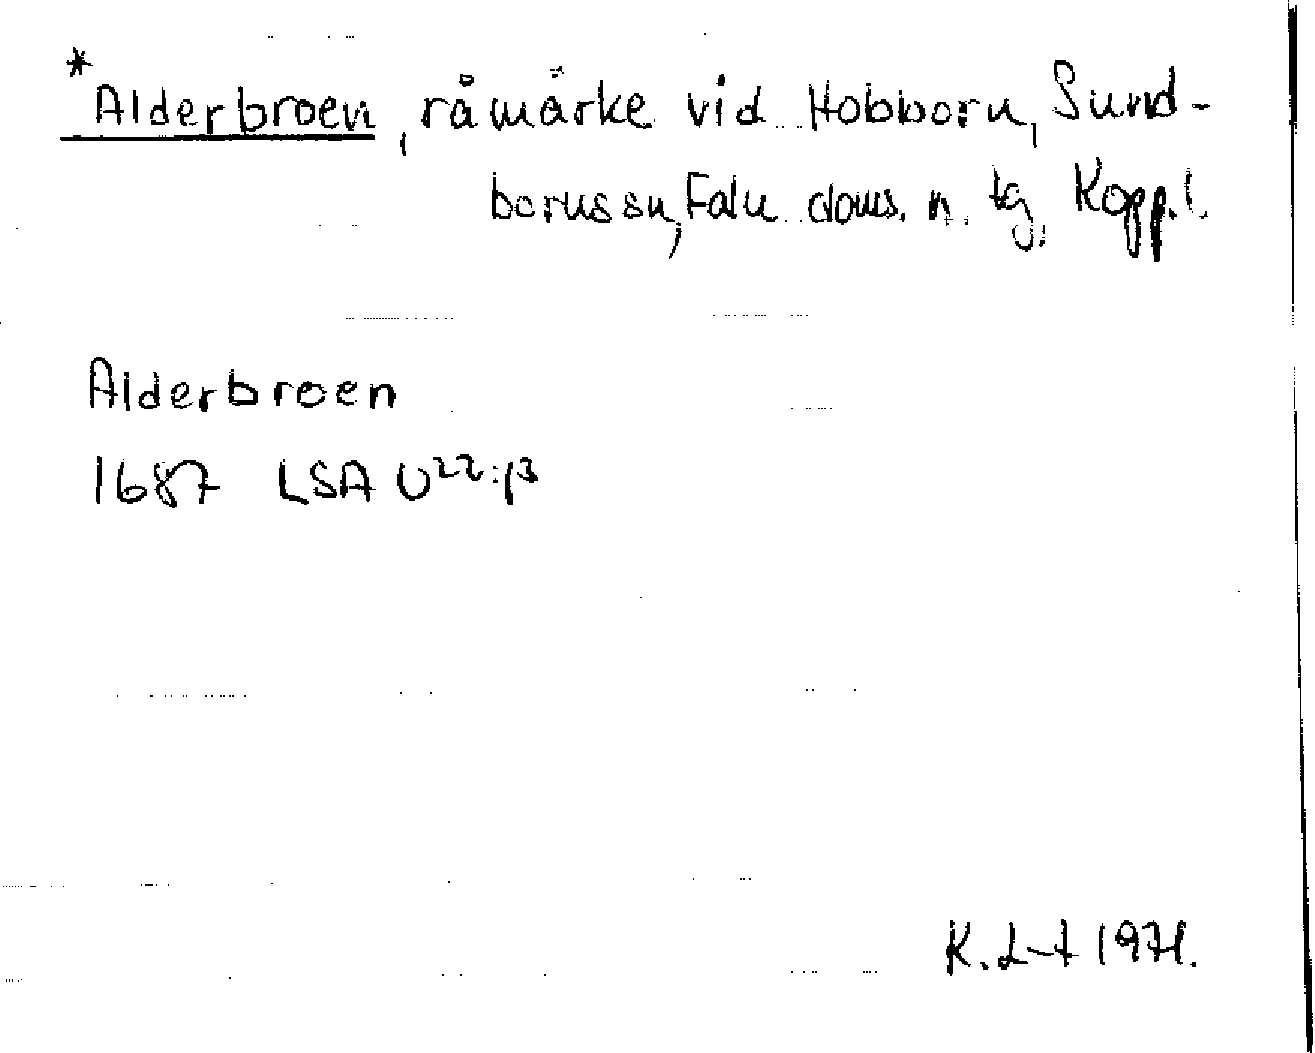 *Alderbroen, råmärke vid Hobborn, Sund-
bornssn, Falu doms. n. tg, Kopp.l.
Alderbroen
1687 LSA U²²:β
K. L-t 1971.